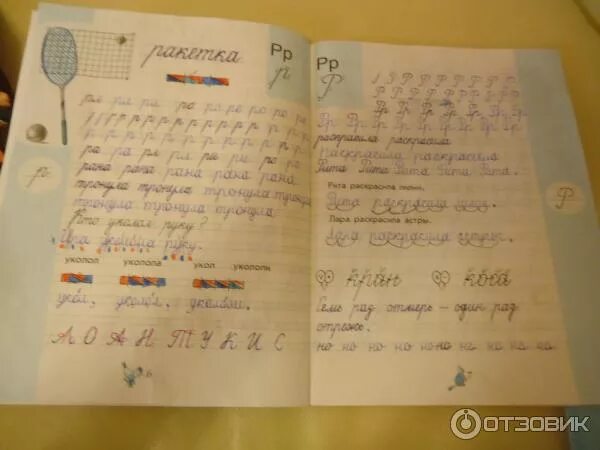 ракетка
Рр
р
ра ра ра ра ра ро ро ро ро
р р р р р р р р р р р р р
р р р р р р р р р р р р р
ра ра ра ра ра ро ра
рана рана рана рана рана
тронула тронула тронула тронула
тронула тронула тронула
Кто уколол руку?
Ира уколола руку.
укол уколола укол укололи
укол, уколол, укололи.
А О А Н Т У К И С
р
6
Рр
Р
Р Р Р Р Р Р Р
Р Р Р Р Р Р Р Р Р
раскрасила раскрасила
Раскрасила раскрасила
Рита Рита Рита Рита Рита.
Рита раскрасила пионы.
Рита раскрасила
Лара раскрасила астры.
Лара раскрасила астры.
кран коса
Семь раз отмерь – один раз
отрежь.
но но но но но но на на на на
Р
7
ОТЗОВИК